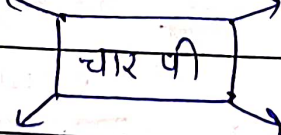 चार पी